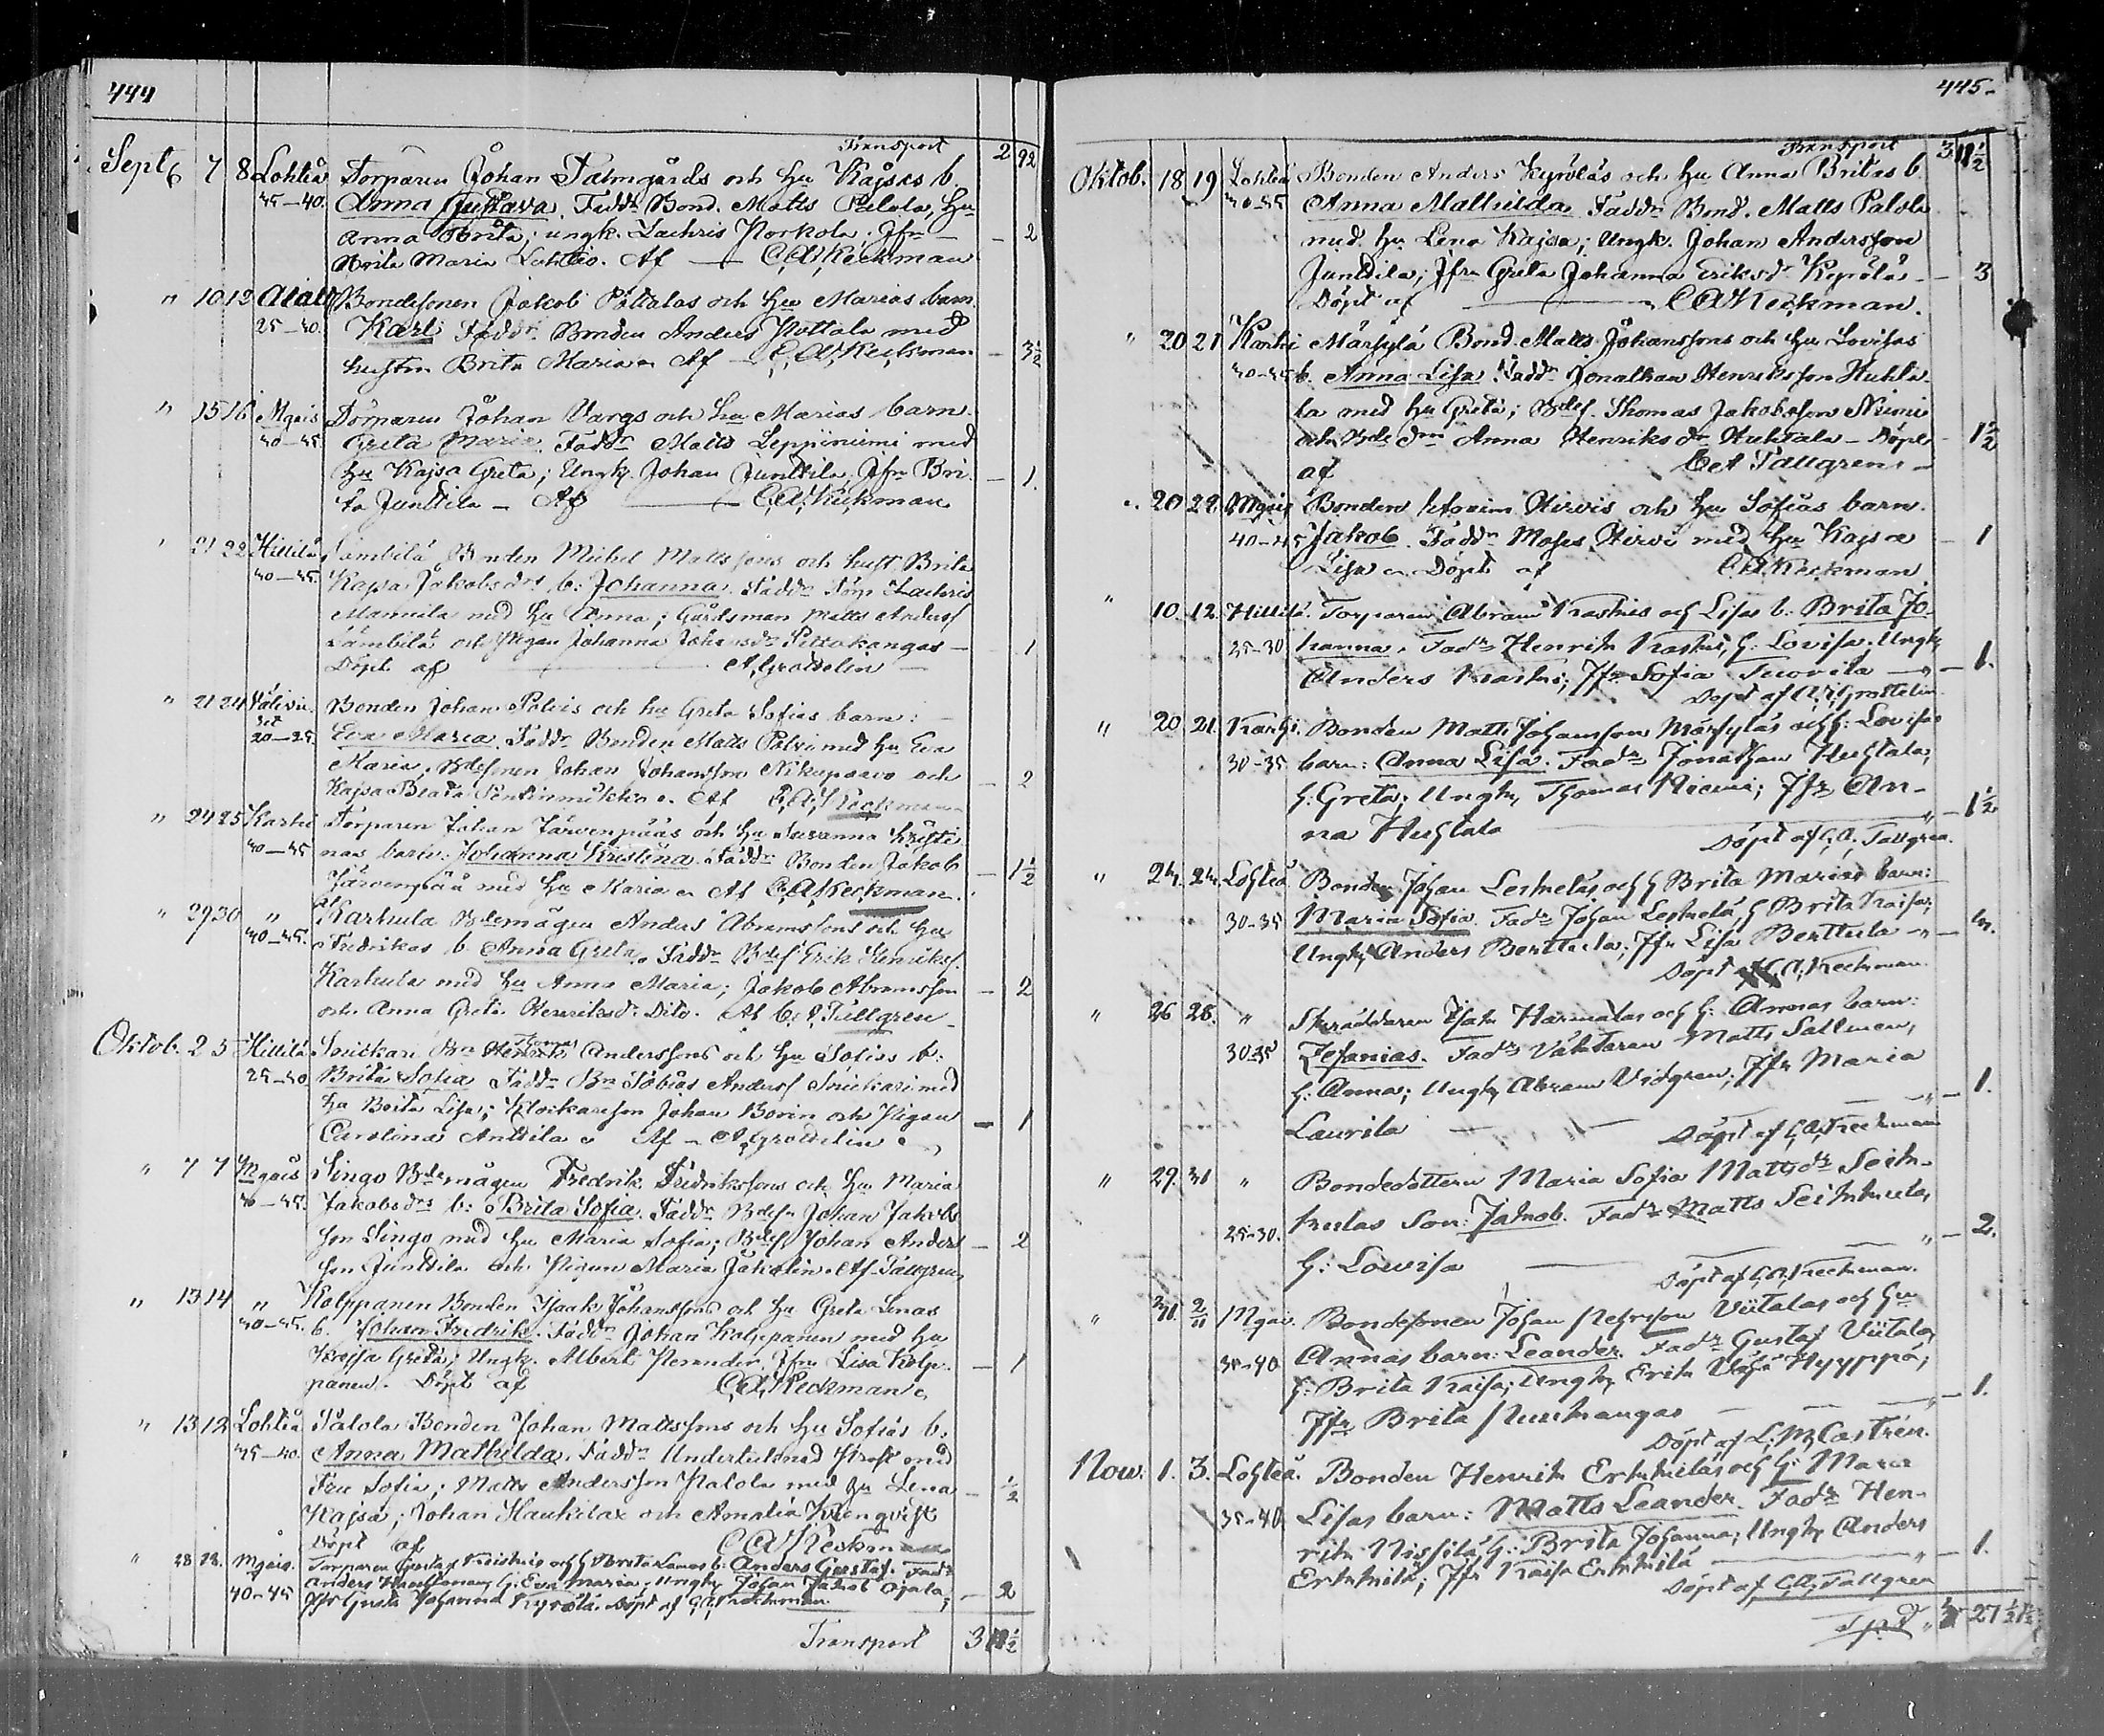 444
Transport 2 92
Sept 7 8 Lohteå Torparen Johan Palmgårds och hu Kajsas b.
35–40. Anna Gustava. Faddr Bond. Matts Palola, hu
Anna Brita; ungk. Zachris Norkola, Jfn – 2
Brita Maria Lohteå. Af — C.A. Keckman
" 10 12 Bondesonen Jakob Pottalas och hu Marias barn
25–30. Karl. Faddr. Bonden Anders Pottala med
hustrun Brita Maria. Af — C.A. Keckman – 3½
" 15 16 Mgais Torparen Johan Vargs och hu Marias barn
40–45 Greta Maria. Faddr Matts Leppiniemi med
hu Kajsa Greta; Ungk. Johan Junttila, Jfn Bri- – 1.
ta Junttila – Af — C.A. Keckman
" 21 22 Hillilä Bonden Michel Mattssons och hust. Brita
40–45. Kajsa Jakobsdrs b: Johanna. Faddr Torp Zachris
Mannila med hu Anna; Gårdsman Matts Anderss
Lämbilä och Pigan Johanna Johansdr Pittokangas – 1
Döpt af — A. Grottelin
" 21 24 Bonden Johan Pölvis och hu Greta Sofias barn:
20–25. Eva Maria. Faddr Bonden Matts Pölvi med hu Eva
Maria; Bdesonen Johan Johansson Nikupaavo och – 2
Kajsa Beata Af C.A. Keckman
" 24 25 Karhi Torparen Johan Järvenpääs och hu Susanna Kristi-
40–45 nas barn: Johanna Kristina. Faddr Bonden Jakob – 1½
Järvenpää med hu Maria. Af C.A. Keckman.
" 29 30 " Karhula Bdemågen Anders Abramssons och hu
40–45. Fredrikas b. Anna Greta. Faddr Bdes Erik Henrikss.
Karhula med hu Anna Maria; Jakob Abramsson – 2
och Anna Greta Henriksdr Dito. Af C.A. Tallgren
Oktob. 2 5 Hillilä Snickari Anderssons och hu Sofias b:
25–30 Brita Sofia Faddr Bn Tobias Anderss Snickari med
hu Brita Lisa; Klockaresson Johan Borin och Pigan – 1
Carolina Anttila. Af – A. Grottelin
" 7 7 Mgais Lingo Bdemågen Fredrik Fredrikssons och hu Maria
40–45. Jakobsdrs b: Brita Sofia. Faddr Bdesn Johan Jakobs-
son Lingo med hu Maria Sofia; Bdes Johan Anders- – 2
son Junttila och Pigan Maria Jäkälin. Af Tallgren
" 13 14 " Kolppanen Bonden Isaak Johanssons och hu Greta Lenas
40–45. b. Johan Fredrik. Faddr Johan Kolppanen med hu
Kajsa Greta; Ungk. Albert Perander, Jfru Lisa Kolp- – 1
panen. Döpt af C.A. Keckman
" 13 12 Lohteå Palola Bonden Johan Mattssons och hu Sofias b:
35–40. Anna Mathilda. Faddr Underlutenad Prost med
Fru Sofia; Matts Andersson Palola med hu Lena – ½
Kajsa; Johan Haukilax och Amalia Krongvist
Döpt af C A Keckman
" 28 28. Mgais. Torparen Gustaf och h Brita Lenas b: Anders Gustaf. Fadr
40–45 Anders h: Eva Maria; Ungk Johan Jakob Ojala;
Jfr Greta Johanna Kyrölä. Döpt af C.A. Keckman. – 2
Transport 3 11½
445.
Transport 3 11½
Oktob. 18 19 Lohteå Bonden Anders Kyröläs och hu Anna Britas b.
30–35 Anna Mathilda Faddr Bond. Matts Palola
med hu Lena Kajsa; Ungk. Johan Andersson
Junttila; Jfru Greta Johanna Eriksdr Kyrölä – 3
Döpt af — C A Keckman.
" 20 21 Karhi Märsylä Bond. Matts Johanssons och hu Lovisas
40–45 b. Anna Lisa. Faddr Jonathan Henriksson Huhta-
la med hu Greta; Bdes. Thomas Jakobsson Niemi
och Bdedrn Anna Henriksdr Huhtala – Döpt – 1½
af C A Tallgren
" 20 22. Mgais Bonden Hirvis och hu Sofias barn.
40–45 Jakob. Faddr Moses Hirvi med hu Kajsa – 1
Lisa. Döpt af C.A. Keckman
" 10. 12. Hillilä. Torparen Abram Kaskis och Lisas b: Brita Jo-
25–30 hanna. Fadr Henrik Kaskis, h: Lovisa. Ungk
Anders Kaskis; Jfr Sofia Tuorila – 1.
Döpt af A. Grottelin
" 20. 21. Karhi. Bonden Matts Johansson Märsyläs och h: Lovisas
30–35 barn: Anna Lisa. Fadr Jonathan Huhtala,
h: Greta; Ungk Thomas Niemi; Jfr An-
na Huhtala – 1½
Döpt af C.A. Tallgren.
" 24. 24. Lohteå Bonden Johan Leskeläs och h Brita Marias barn:
30–35 Maria Sofia. Fadr Johan Leskelä, h Brita Kaisa;
Ungk Anders Berttula; Jfr Lisa Berttula
Döpt af C.A. Keckman.
" 26 28. " Skräddaren Isak Harmalas och h: Annas barn:
30–35 Zefanias. Fadr Väktaren Matts Sallmen,
h: Anna; Ungk Abram Vidgren; Jfr Maria
Laurila – 1.
Döpt af C.A. Keckman
" 29. 31 " Bondedottern Maria Sofia Mattsdr Seik-
25–30. kulas Son: Jakob. Fadr Matts Seikkula,
h: Lowisa – 2.
Döpt af C.A. Keckman.
" 31. 2/11 Mgais. Bondesonen Johan Viitalas och hu
30–40 Annas barn: Leander. Fadr Gustaf Viitala,
h: Brita Kaisa; Ungk Erik Hyyppä;
Jfr Brita – 1.
Döpt af L. M. Castrén.
Now. 1. 3. Lohteå. Bonden Henrik Erkkiläs och h: Maria
35–40 Lisas barn: Matts Leander. Fadr Hen-
rik Nissilä h: Brita Johanna; Ungk Anders
Erkkilä; Jfr Kaisa Erkkilä – 1.
Döpt af C.A. Tallgren
27½